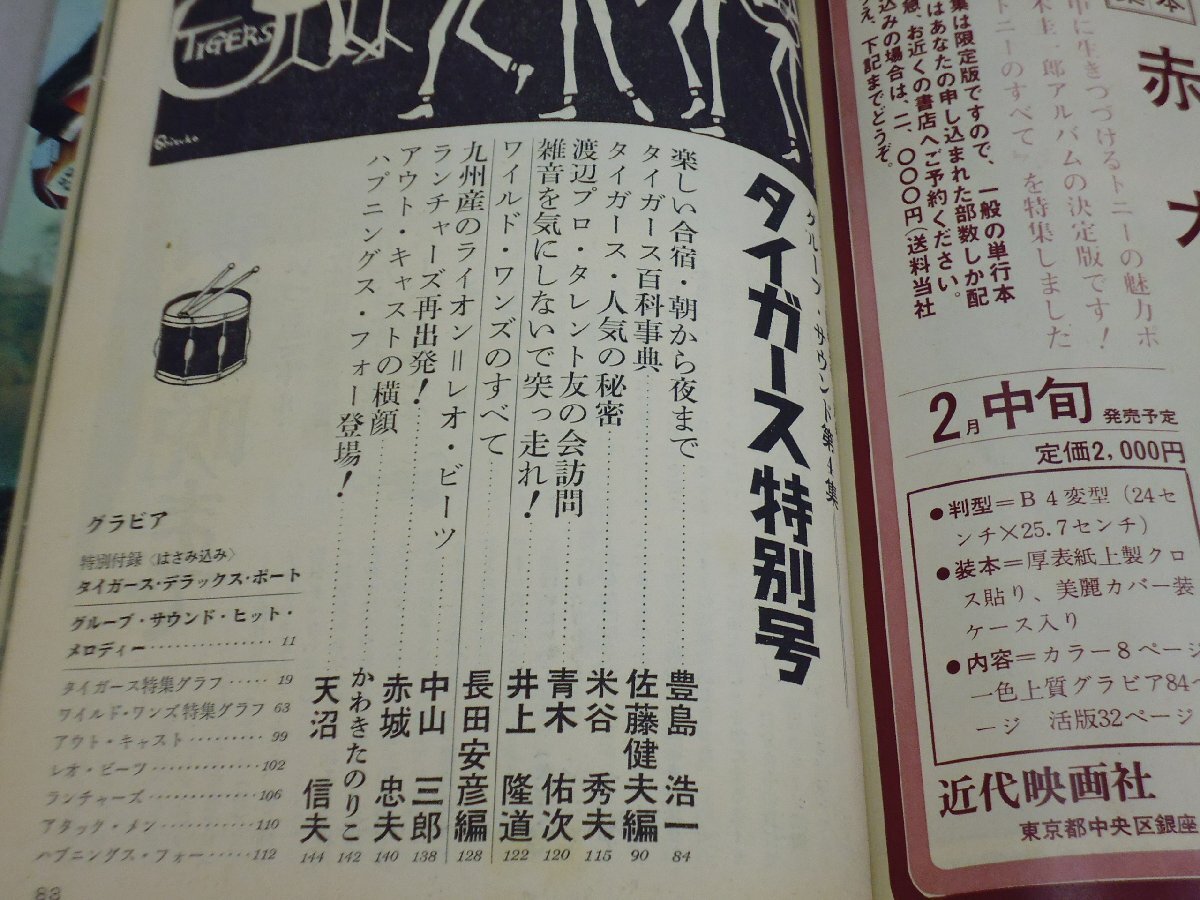 TIGERS
Shizuko
グループ・サウンド第4集
タイガース特別号
楽しい合宿・朝から夜まで……豊島 浩一 84
タイガース百科事典……佐藤健夫編 90
タイガース・人気の秘密……米谷 秀夫 115
渡辺プロ・タレント友の会訪問……青木 佑次 120
雑音を気にしないで突っ走れ!……井上 隆道 122
ワイルド・ワンズのすべて……長田安彦編 128
九州産のライオン=レオ・ビーツ……中山 三郎 138
ランチャーズ再出発!……赤城 忠夫 140
アウト・キャストの横顔……かわきたのりこ 142
ハプニングス・フォー登場!……天沼 信夫 144
グラビア
特別付録〈はさみ込み〉
タイガース・デラックス・ポート
グループ・サウンド・ヒット・
メロディー…………… 11
タイガース特集グラフ …… 19
ワイルド・ワンズ特集グラフ 63
アウト・キャスト ……… 99
レオ・ビーツ…………… 102
ランチャーズ…………… 106
アタック・メン………… 110
ハプニングス・フォー…… 112
83
本
赤
中に生きつづけるトニーの魅力ポ
木圭一郎アルバムの決定版です!
トニーのすべて〟を特集しました
集は限定版ですので、一般の単行本
はあなたの申し込まれた部数しか配
急、お近くの書店へご予約ください。
込みの場合は、二、〇〇〇円(送料当社
うえ、下記までどうぞ。
2月中旬 発売予定
定価2,000円
●判型=B4変型(24セ
ンチ×25.7センチ)
●装本=厚表紙上製クロ
ス貼り、美麗カバー装
ケース入り
●内容=カラー8ページ
一色上質グラビア84ペ
ージ 活版32ページ
近代映画社
東京都中央区銀座